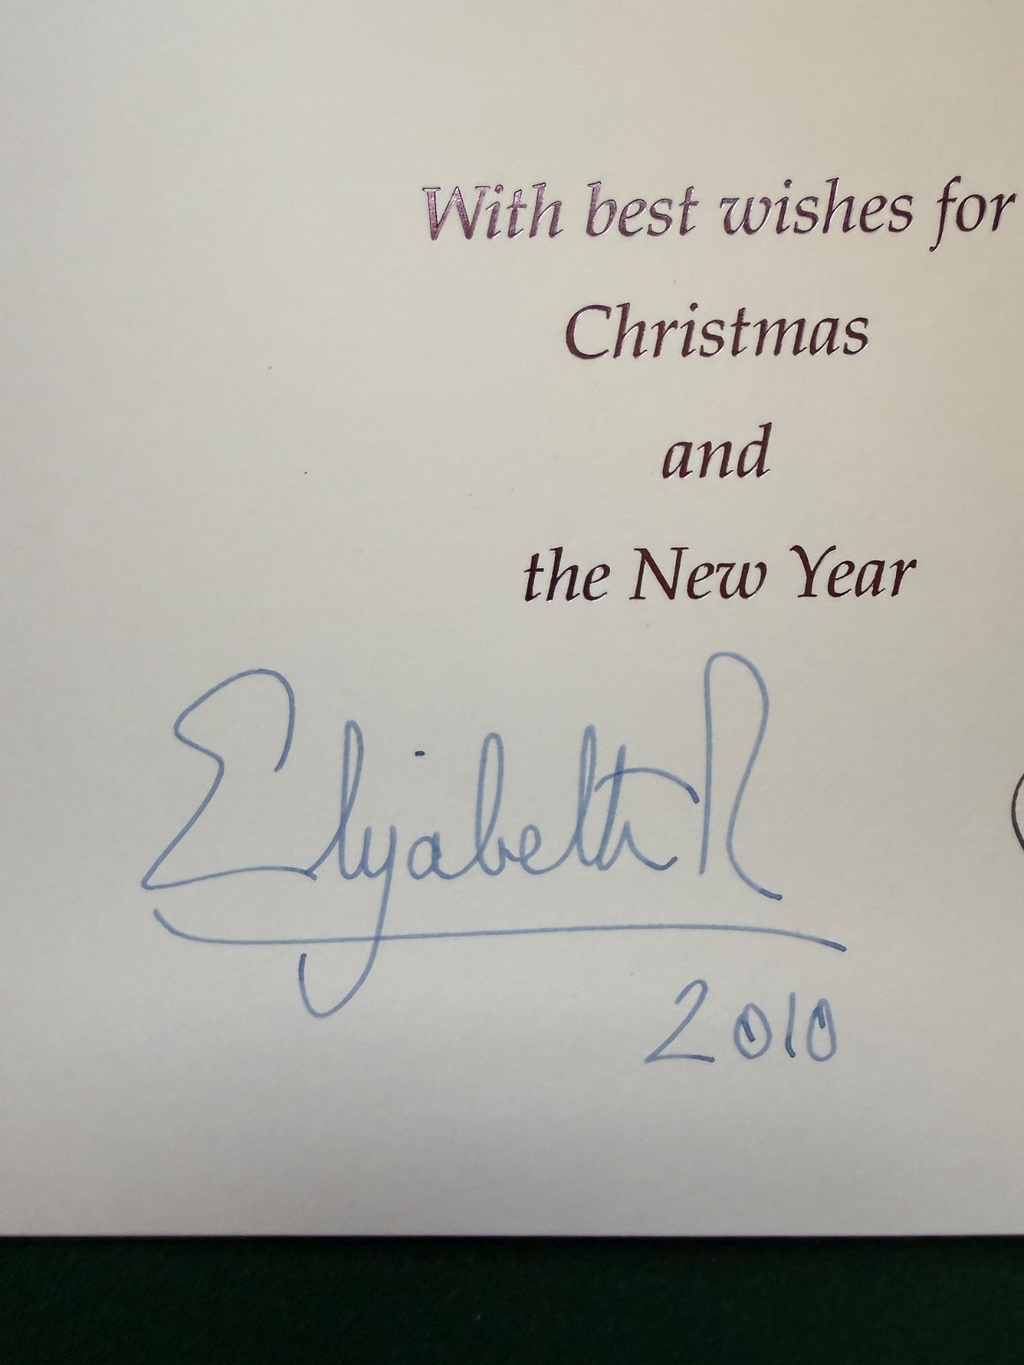 With best wishes for
Christmas
and
the New Year
Elizabeth R
2010